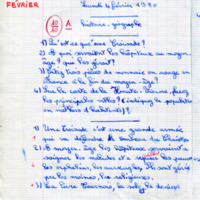 FÉVRIER
Lundi 4 février 1980
A
histoire-géographie
1) Qu'est-ce qu'une croisade?
2) A quoi servaient les hôpitaux au moyen-
âge? qui les gérait?
3) Citez trois pièces de monnaie en usage en
France à la fin du moyen-âge?
4) Sur la carte de la Haute-, placez
les principales villes (indiquez la population
en milliers d'habitants)?
1) Une croisade, c'est une grande armée
qui va défendre le
2) Au moyen-âge les hôpitaux servaient à
soigner les malades et à les pauvres
les orphelins, les Ils sont gérés
par les moines, les religieuses.
3) La livre tournois, le sol, le denier